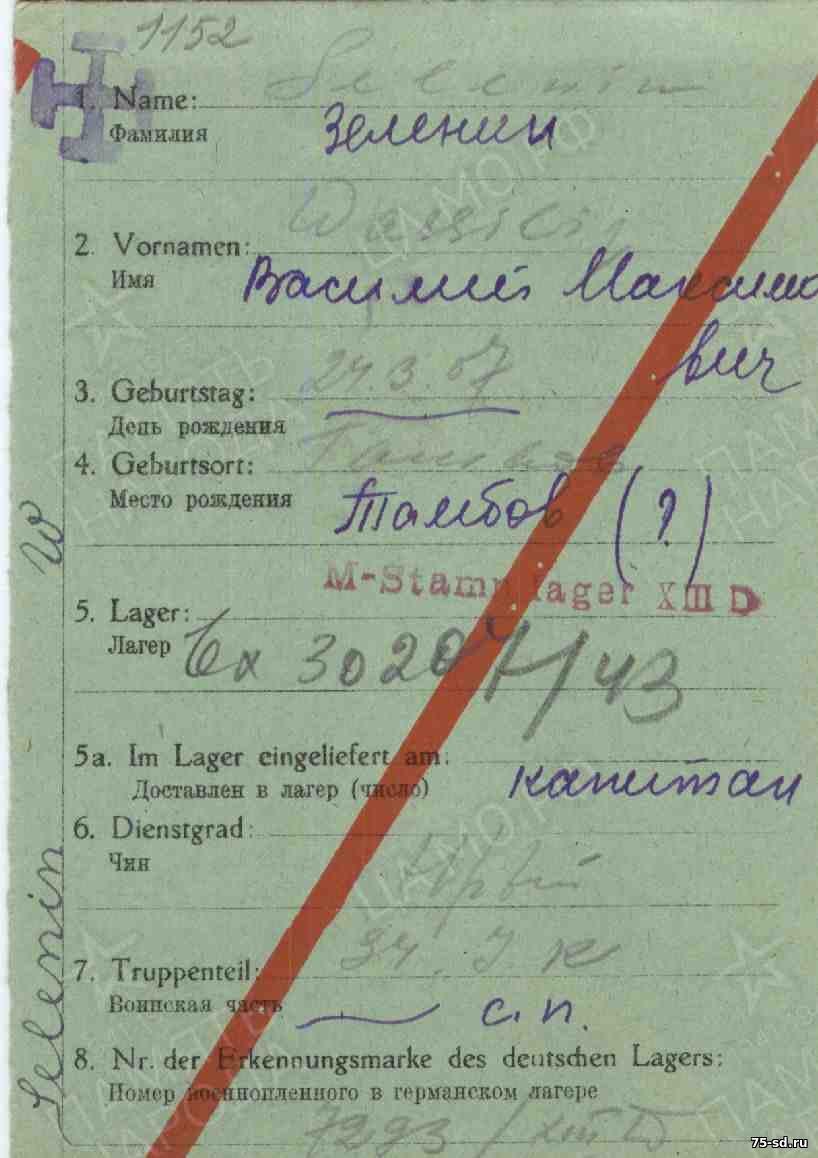 1152
Selenin
1. Name:
Фамилия
Зеленин
Wassilij
2. Vornamen:
Имя
Василий Максимо
вич
3. Geburtstag: 24.3.07
День рождения
4. Geburtsort:
Место рождения
Тамбов (?)
M-Stammlager XIII D
5. Lager:
Лагер
Вх 30207/43
5a. Im Lager eingeliefert am:
Доставлен в лагер (число)
капитан
6. Dienstgrad:
Чин
7. Truppenteil:
Воинская часть
с.п.
8. Nr. der Erkennungsmarke des deutschen Lagers:
Номер военнопленного в германском лагере
Selenin W
75-sd.ru